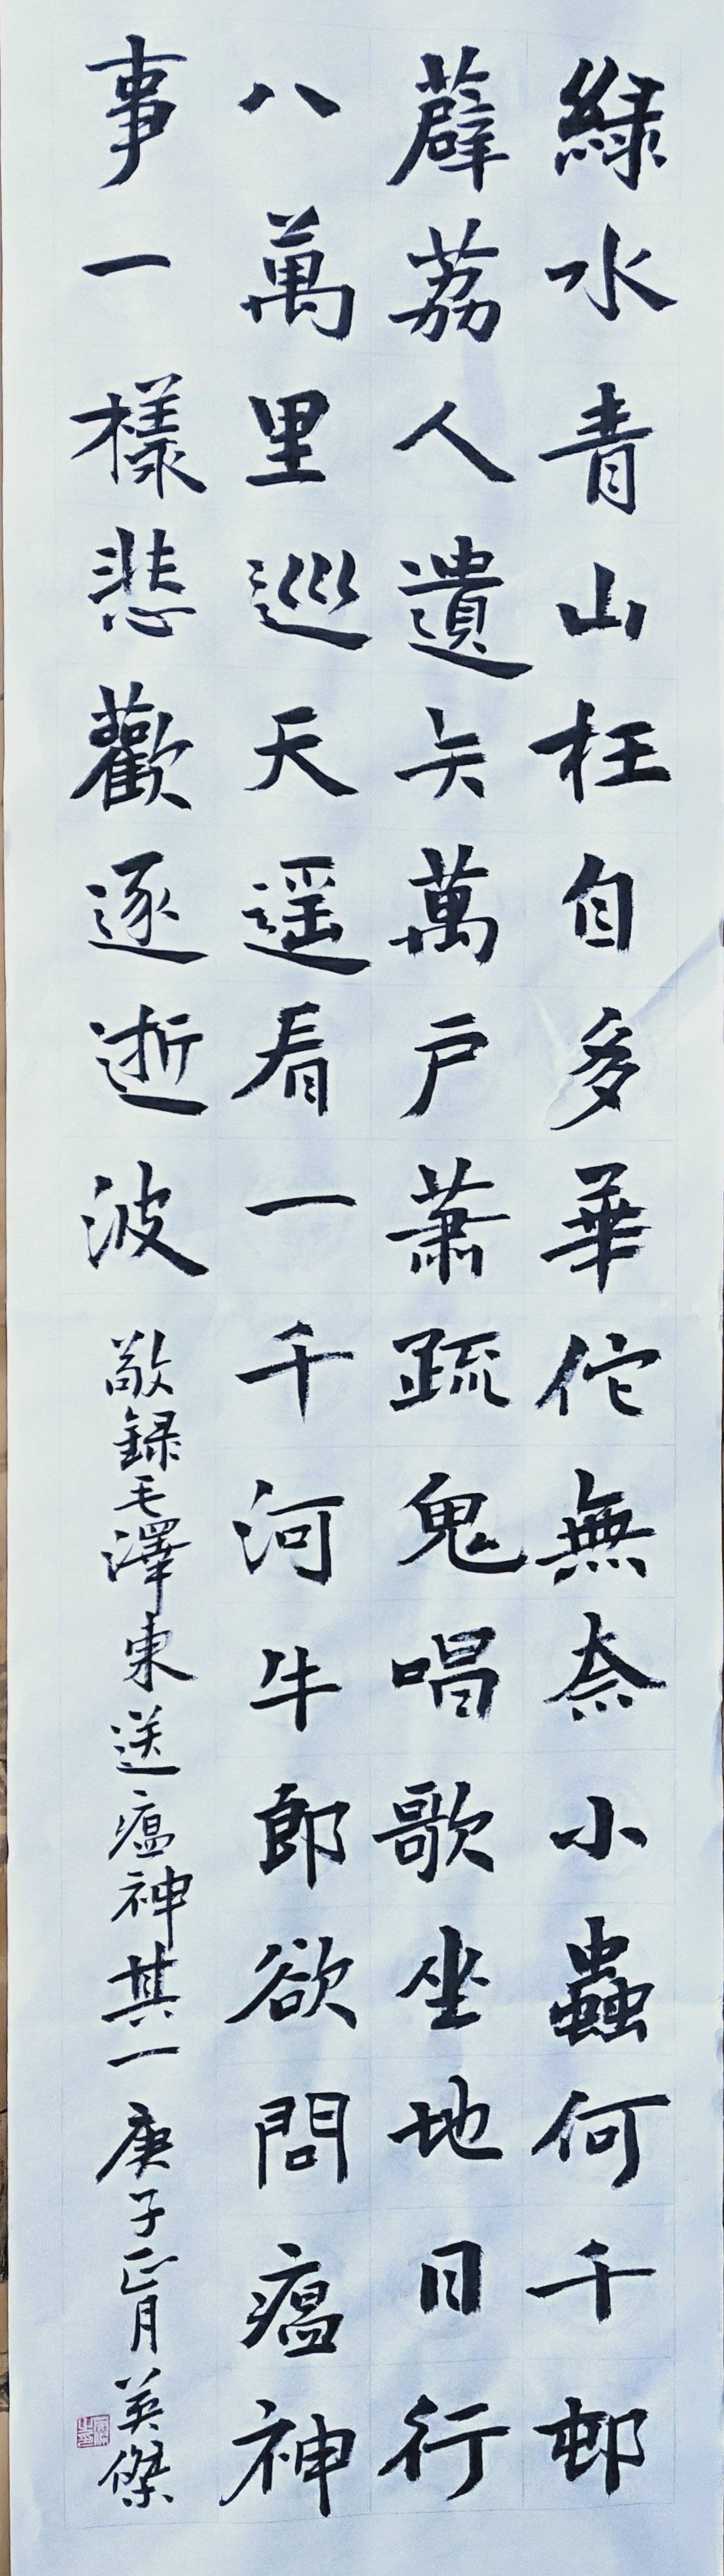 綠水青山枉自多華佗無奈小蟲何千邨
薜荔人遺矢萬户蕭疏鬼唱歌坐地日行
八萬里巡天遥看一千河牛郎欲問瘟神
事一樣悲歡逐逝波 敬録毛澤東送瘟神其一庚子正月英傑